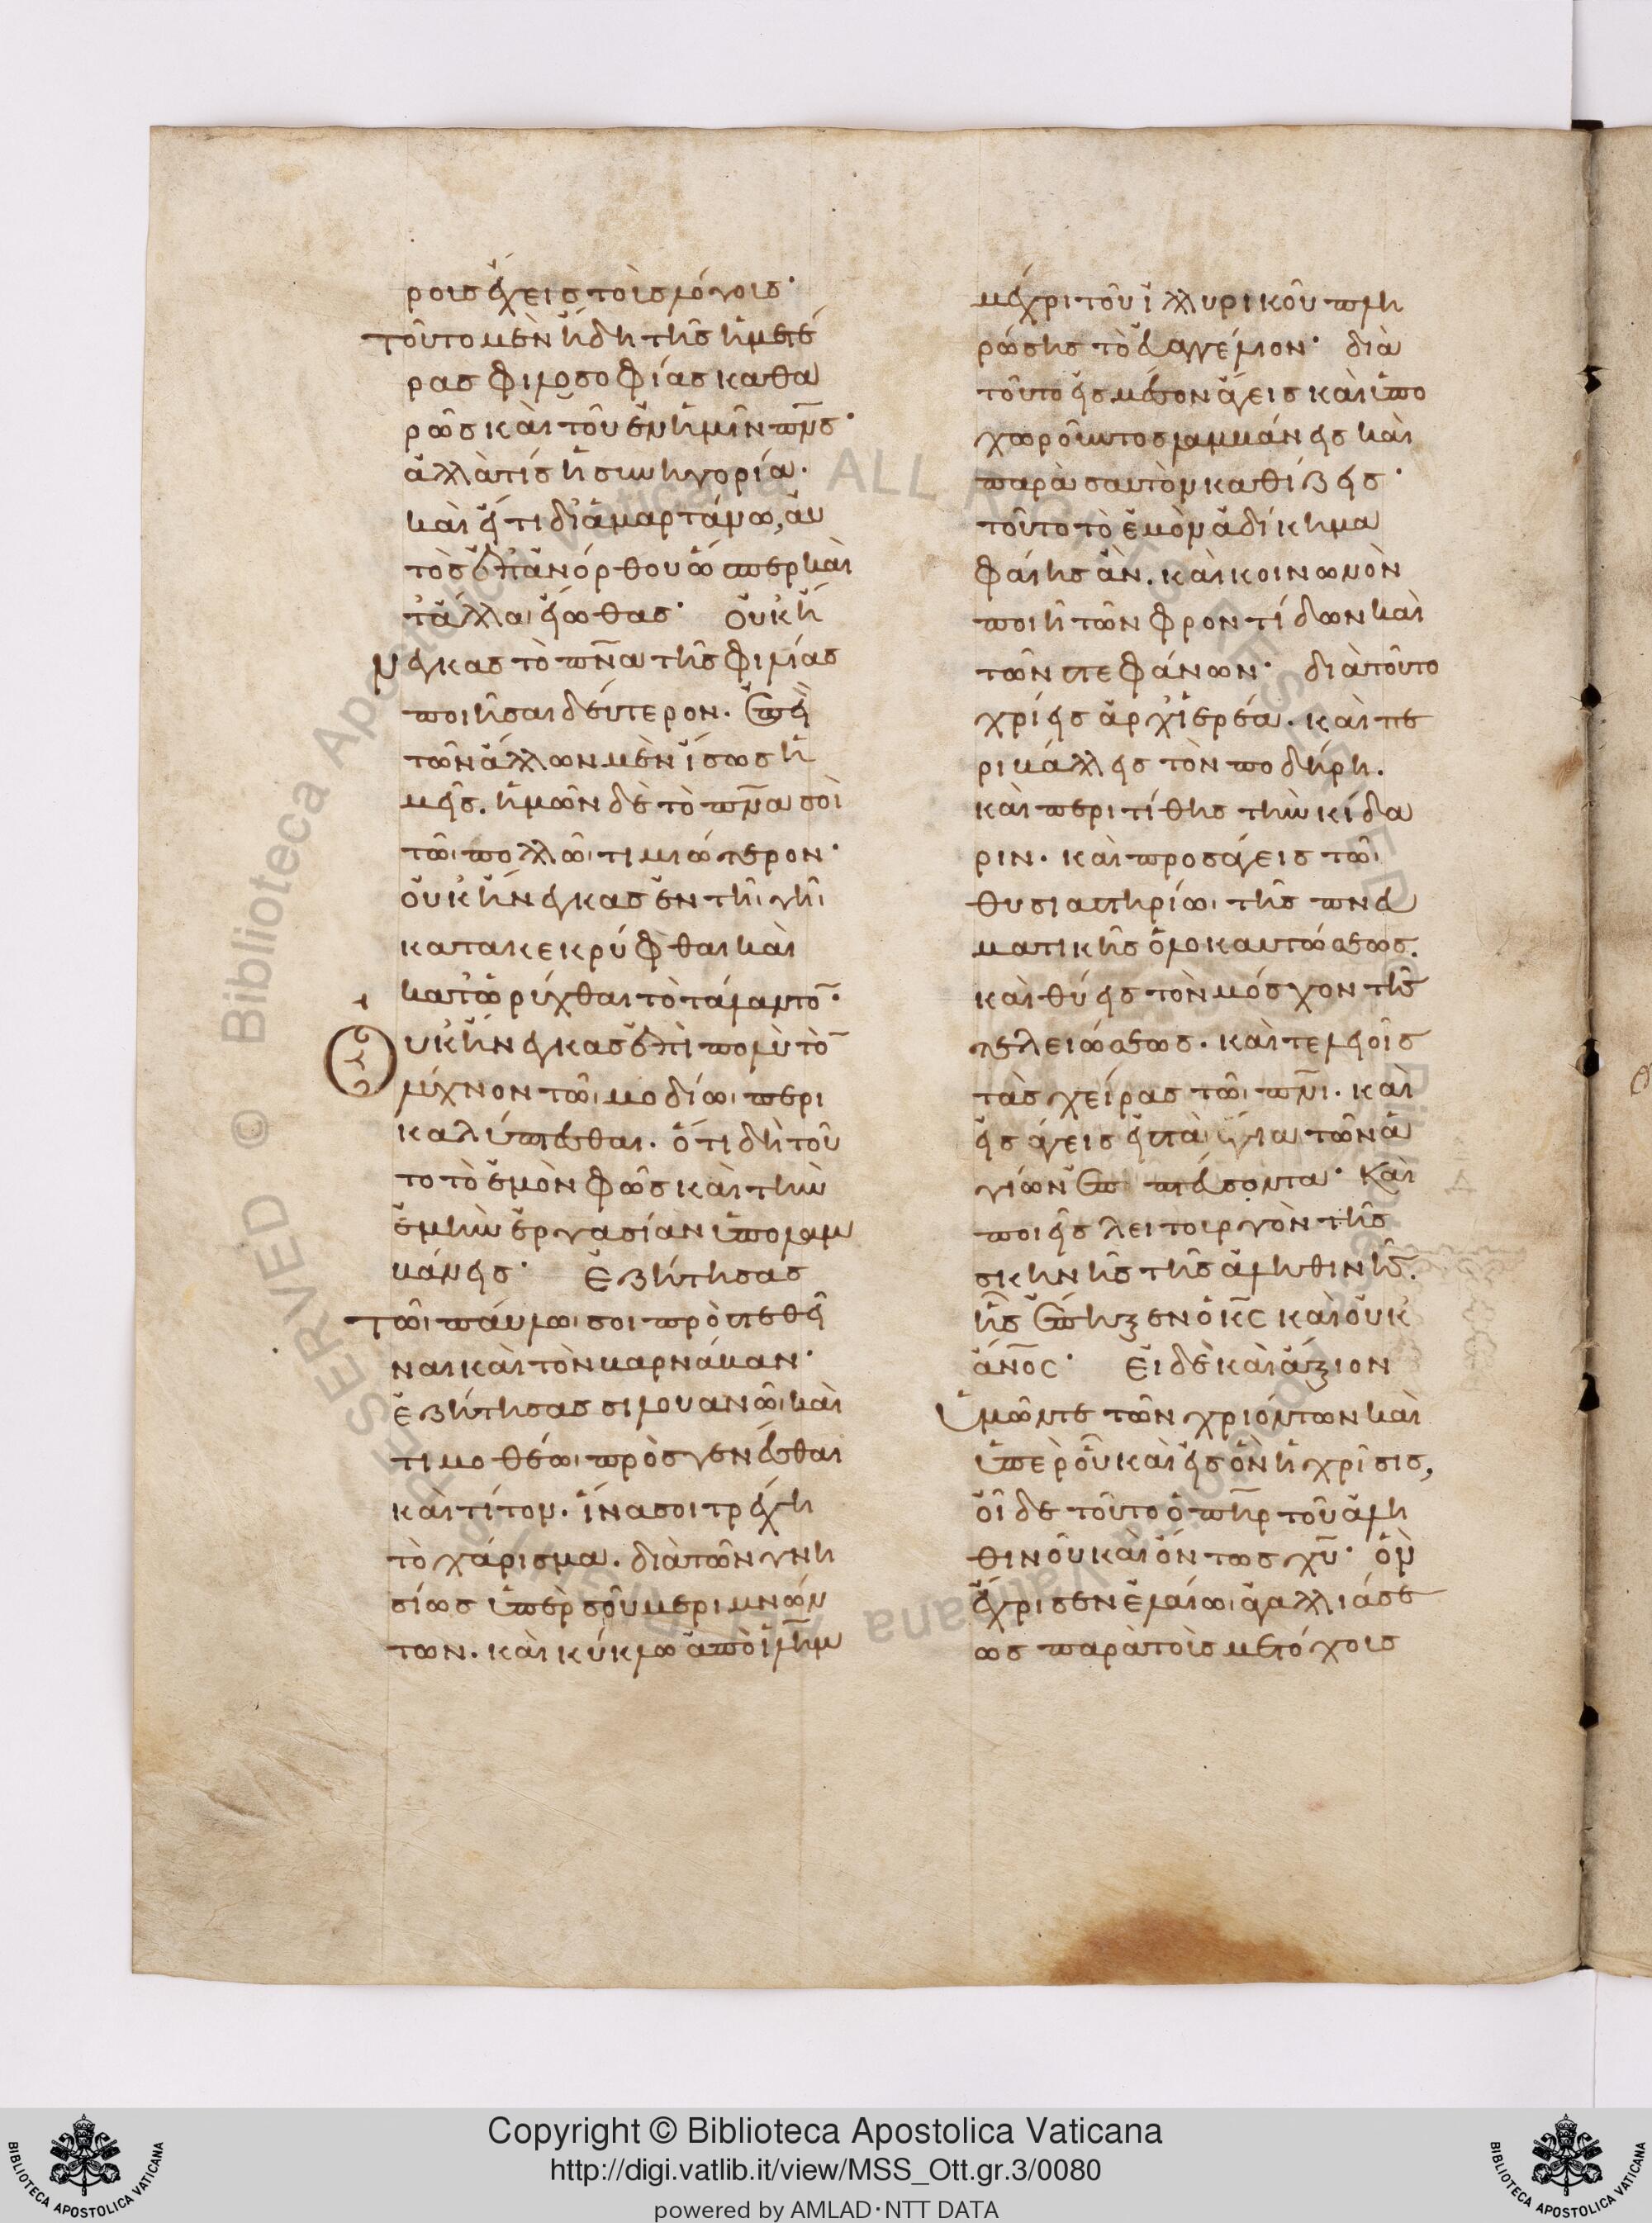 ροις ἔχεις τοῖς λόγοις·
τοῦτο μὲν ἤδη τῆς ἡμετέ
ρας φιλοσοφίας καθα
ρῶς καὶ τοῦ ἐν ἡμῖν πν̅ς·
ἀλλὰ τίς ἡ συνηγορία·
καὶ εἴ τι διαμαρτάνω, αὐ
τὸς ἐπανόρθου ὥσπερ καὶ
τἄλλα εἴωθας· οὐκ ἤ
νεγκας τὸ πν̅α τῆς φιλίας
ποιῆσαι δεύτερον. ἐπεὶ
τῶν ἄλλων μὲν ἴσως ἡ
μεῖς. ἡμῶν δὲ τὸ πν̅α σοὶ
τῶι πολλῶι τιμιώτερον·
οὐκ ἤνεγκας ἐν τῆι γῆι
κατακεκρύφθαι καὶ
κατωρύχθαι τὸ τάλαντο̅·
Οὐκ ἤνεγκας ἐπὶ πολὺ τὸ̅
λύχνον τῶι μοδίωι περι
καλύπτεσθαι. ὅτι δὴ τοῦ
το τὸ ἐμὸν φῶς καὶ τὴν
ἐμὴν ἐργασίαν ὑπολαμ
βάνεις· Ἐζήτησας
τῶι παύλωι σοι προστεθῆ
ναι καὶ τὸν βαρνάβαν·
ἐζήτησας σιλουανῶι καὶ
τιμοθέωι προσγενέσθαι
καὶ τίτον. ἵνα σοι τρέχη
τὸ χάρισμα. διὰ τῶν γνη
σίως ὑπὲρ σοῦ μεριμνών
των. καὶ κύκλω ἀπὸ ἱλημ̅
μέχρι τοῦ ἰλλυρικοῦ πλη
ρώσης τὸ εὐαγγέλιον· διὰ
τοῦτο εἰς μέσον ἄγεις καὶ ὑπο
χωροῦντος λαμβάνεις καὶ
παρὰ σαυτὸν καθίζεις·
τοῦτο τὸ ἐμὸν ἀδίκημα
φαίης ἄν. καὶ κοινωνὸν
ποιῆ τῶν φροντίδων καὶ
τῶν στεφάνων· διὰ τοῦτο
χρίεις ἀρχιερέα. καὶ πε
ριβάλλεις τὸν ποδήρη.
καὶ περιτίθης τὴν κίδα
ριν. καὶ προσάγεις τῶι
θυσιαστηρίωι τῆς πνευ
ματικῆς ὁλοκαυτώσεως.
καὶ θύεις τὸν μόσχον τῆς
τελειώσεως. καὶ τελειοῖς
τὰς χεῖρας τῶι πν̅ι. καὶ
εἰσάγεις εἰς τὰ ἅγια τῶν ἁ
γίων ἐποπτεύσοντα· Καὶ
ποιεῖς λειτουργὸν τῆς
σκηνῆς τῆς ἀληθινῆς.
ἣν ἔπηξεν ὁ κ̅ς καὶ οὐκ
ἄν̅ος· Εἰ δὲ καὶ ἄξιον
ὑμῶν τε τῶν χριόντων καὶ
ὑπὲρ οὗ καὶ εἰς ὃν ἡ χρῖσις,
οἶδε τοῦτο ὁ πη̅ρ τοῦ ἀλη
θινοῦ καὶ ὄντως χ̅υ· ὃν
ἔχρισεν ἐλαίωι ἀγαλλιάσε
ως παρὰ τοῖς μετόχοις
Copyright © Biblioteca Apostolica Vaticana
http://digi.vatlib.it/view/MSS_Ott.gr.3/0080
powered by AMLAD·NTT DATA